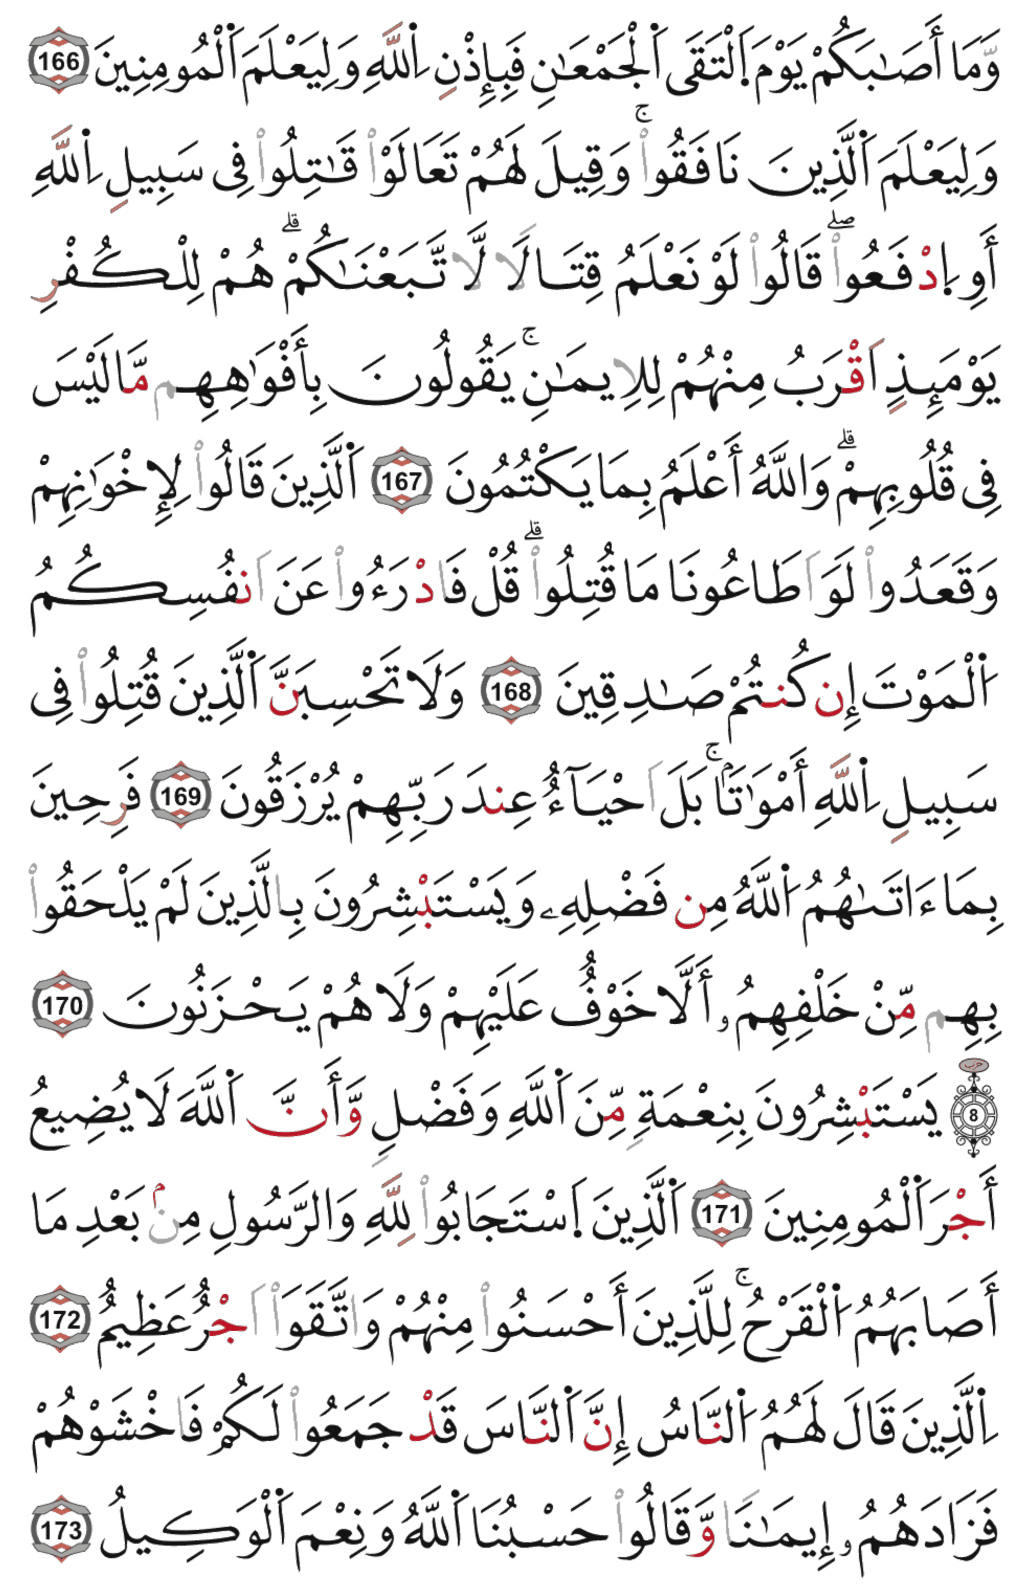 وَمَا أَصَـٰبَكُمْ يَوْمَ اَ۬لْتَقَى اَ۬لْجَمْعَـٰنِ فَبِإِذْنِ اِ۬للَّهِ وَلِيَعْلَمَ اَ۬لْمُومِنِينَ 166
وَلِيَعْلَمَ اَ۬لَّذِينَ نَافَقُواْۚ وَقِيلَ لَهُمْ تَعَالَوْاْ قَـٰتِلُواْ فِى سَبِيلِ اِ۬للَّهِ
أَوِ اِ۪دْفَعُواْۖ قَالُواْ لَوْ نَعْلَمُ قِتَالًا لَّا تَّبَعْنَـٰكُمْۗ هُمْ لِلْكُفْرِ
يَوْمَئِذٍ اَقْرَبُ مِنْهُمْ لِلِايمَـٰنِۚ يَقُولُونَ بِأَفْوَٰهِهِم مَّا لَيْسَ
فِى قُلُوبِهِمْۗ وَاللَّهُ أَعْلَمُ بِمَا يَكْتُمُونَ 167 اَ۬لَّذِينَ قَالُواْ لِإِخْوَٰنِهِمْ
وَقَعَدُواْ لَوَ اَطَاعُونَا مَا قُتِلُواْۗ قُلْ فَادْرَءُواْ عَنَ اَنفُسِكُمُ
اُ۬لْمَوْتَ إِن كُنتُمْ صَـٰدِقِينَ 168 وَلَا تَحْسِبَنَّ اَ۬لَّذِينَ قُتِلُواْ فِى
سَبِيلِ اِ۬للَّهِ أَمْوَٰتَۢاۚ بَلَ اَحْيَآءٌ عِندَ رَبِّهِمْ يُرْزَقُونَ 169 فَرِحِينَ
بِمَا ءَاتَىٰهُمُ اُ۬للَّهُ مِن فَضْلِهِۦ وَيَسْتَبْشِرُونَ بِالَّذِينَ لَمْ يَلْحَقُواْ
بِهِم مِّنْ خَلْفِهِمُۥ أَلَّا خَوْفٌ عَلَيْهِمْ وَلَا هُمْ يَحْزَنُونَ 170
حزب 8 يَسْتَبْشِرُونَ بِنِعْمَةٍ مِّنَ اَ۬للَّهِ وَفَضْلٍ وَأَنَّ اَ۬للَّهَ لَا يُضِيعُ
أَجْرَ اَ۬لْمُومِنِينَ 171 اَ۬لَّذِينَ اَ۪سْتَجَابُواْ لِلَّهِ وَالرَّسُولِ مِنۢ بَعْدِ مَا
أَصَابَهُمُ اُ۬لْقَرْحُۚ لِلَّذِينَ أَحْسَنُواْ مِنْهُمْ وَاتَّقَوَاْ اَجْرٌ عَظِيمٌ 172
اِ۬لَّذِينَ قَالَ لَهُمُ اُ۬لنَّاسُ إِنَّ اَ۬لنَّاسَ قَدْ جَمَعُواْ لَكُمْ فَاخْشَوْهُمْ
فَزَادَهُمُۥ إِيمَـٰنًا وَقَالُواْ حَسْبُنَا اَ۬للَّهُ وَنِعْمَ اَ۬لْوَكِيلُ 173